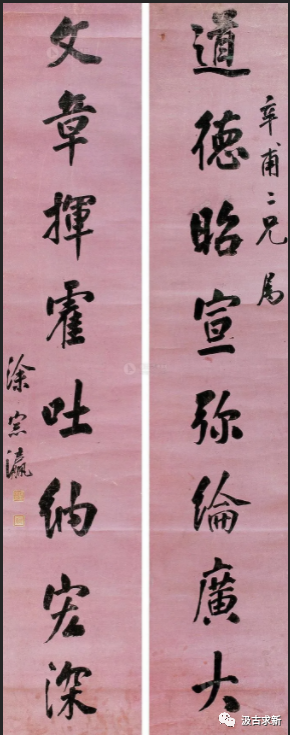 道德昭宣弥綸廣大
辛甫二兄属
文章揮霍吐納宏深
涂宗瀛
汲古求新